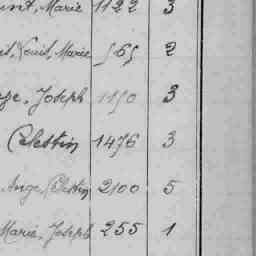 Marie 1122 3
Louis, Marie 565 2
Joseph 1150 3
Célestin 1476 3
Ange, Célestin 2100 5
Marie, Joseph 255 1